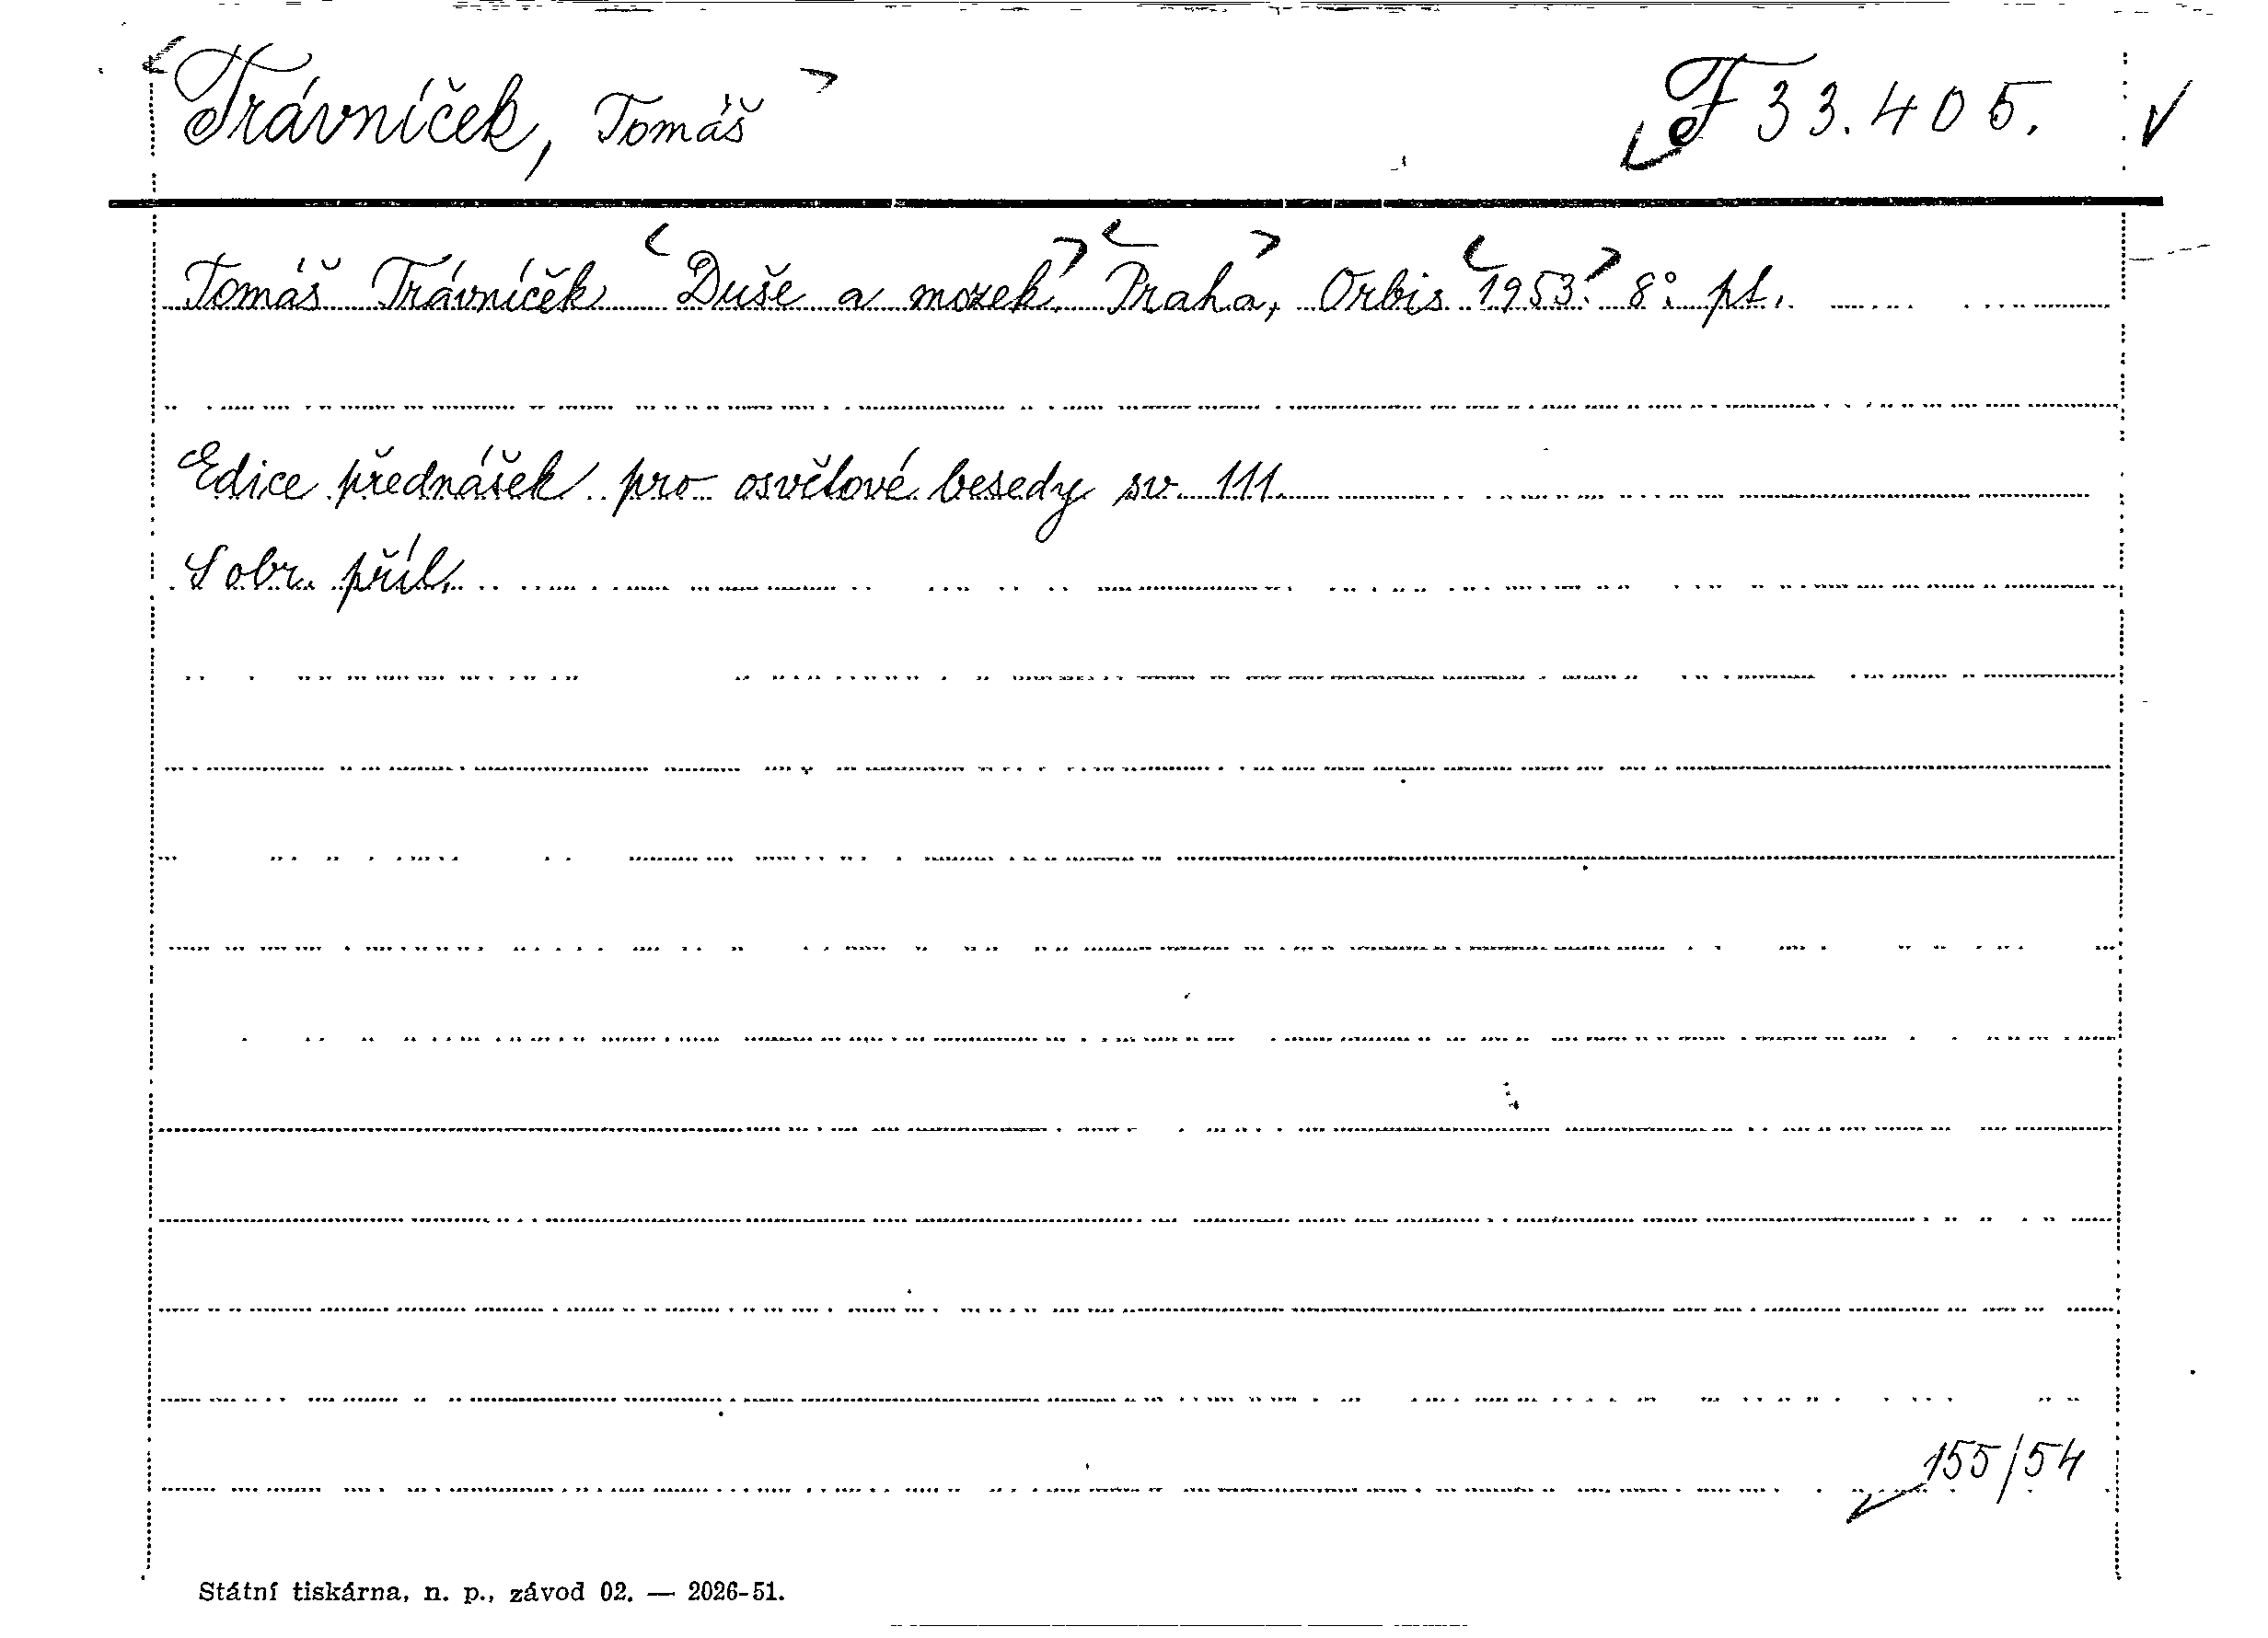 Trávníček, Tomáš
F 33.405.
Tomáš Trávníček Duše a mozek. Praha, Orbis 1953. 8° pt.
Edice přednášek pro osvětové besedy sv. 111.
S obr. příl.
155/54
Státní tiskárna, n. p., závod 02. — 2026-51.